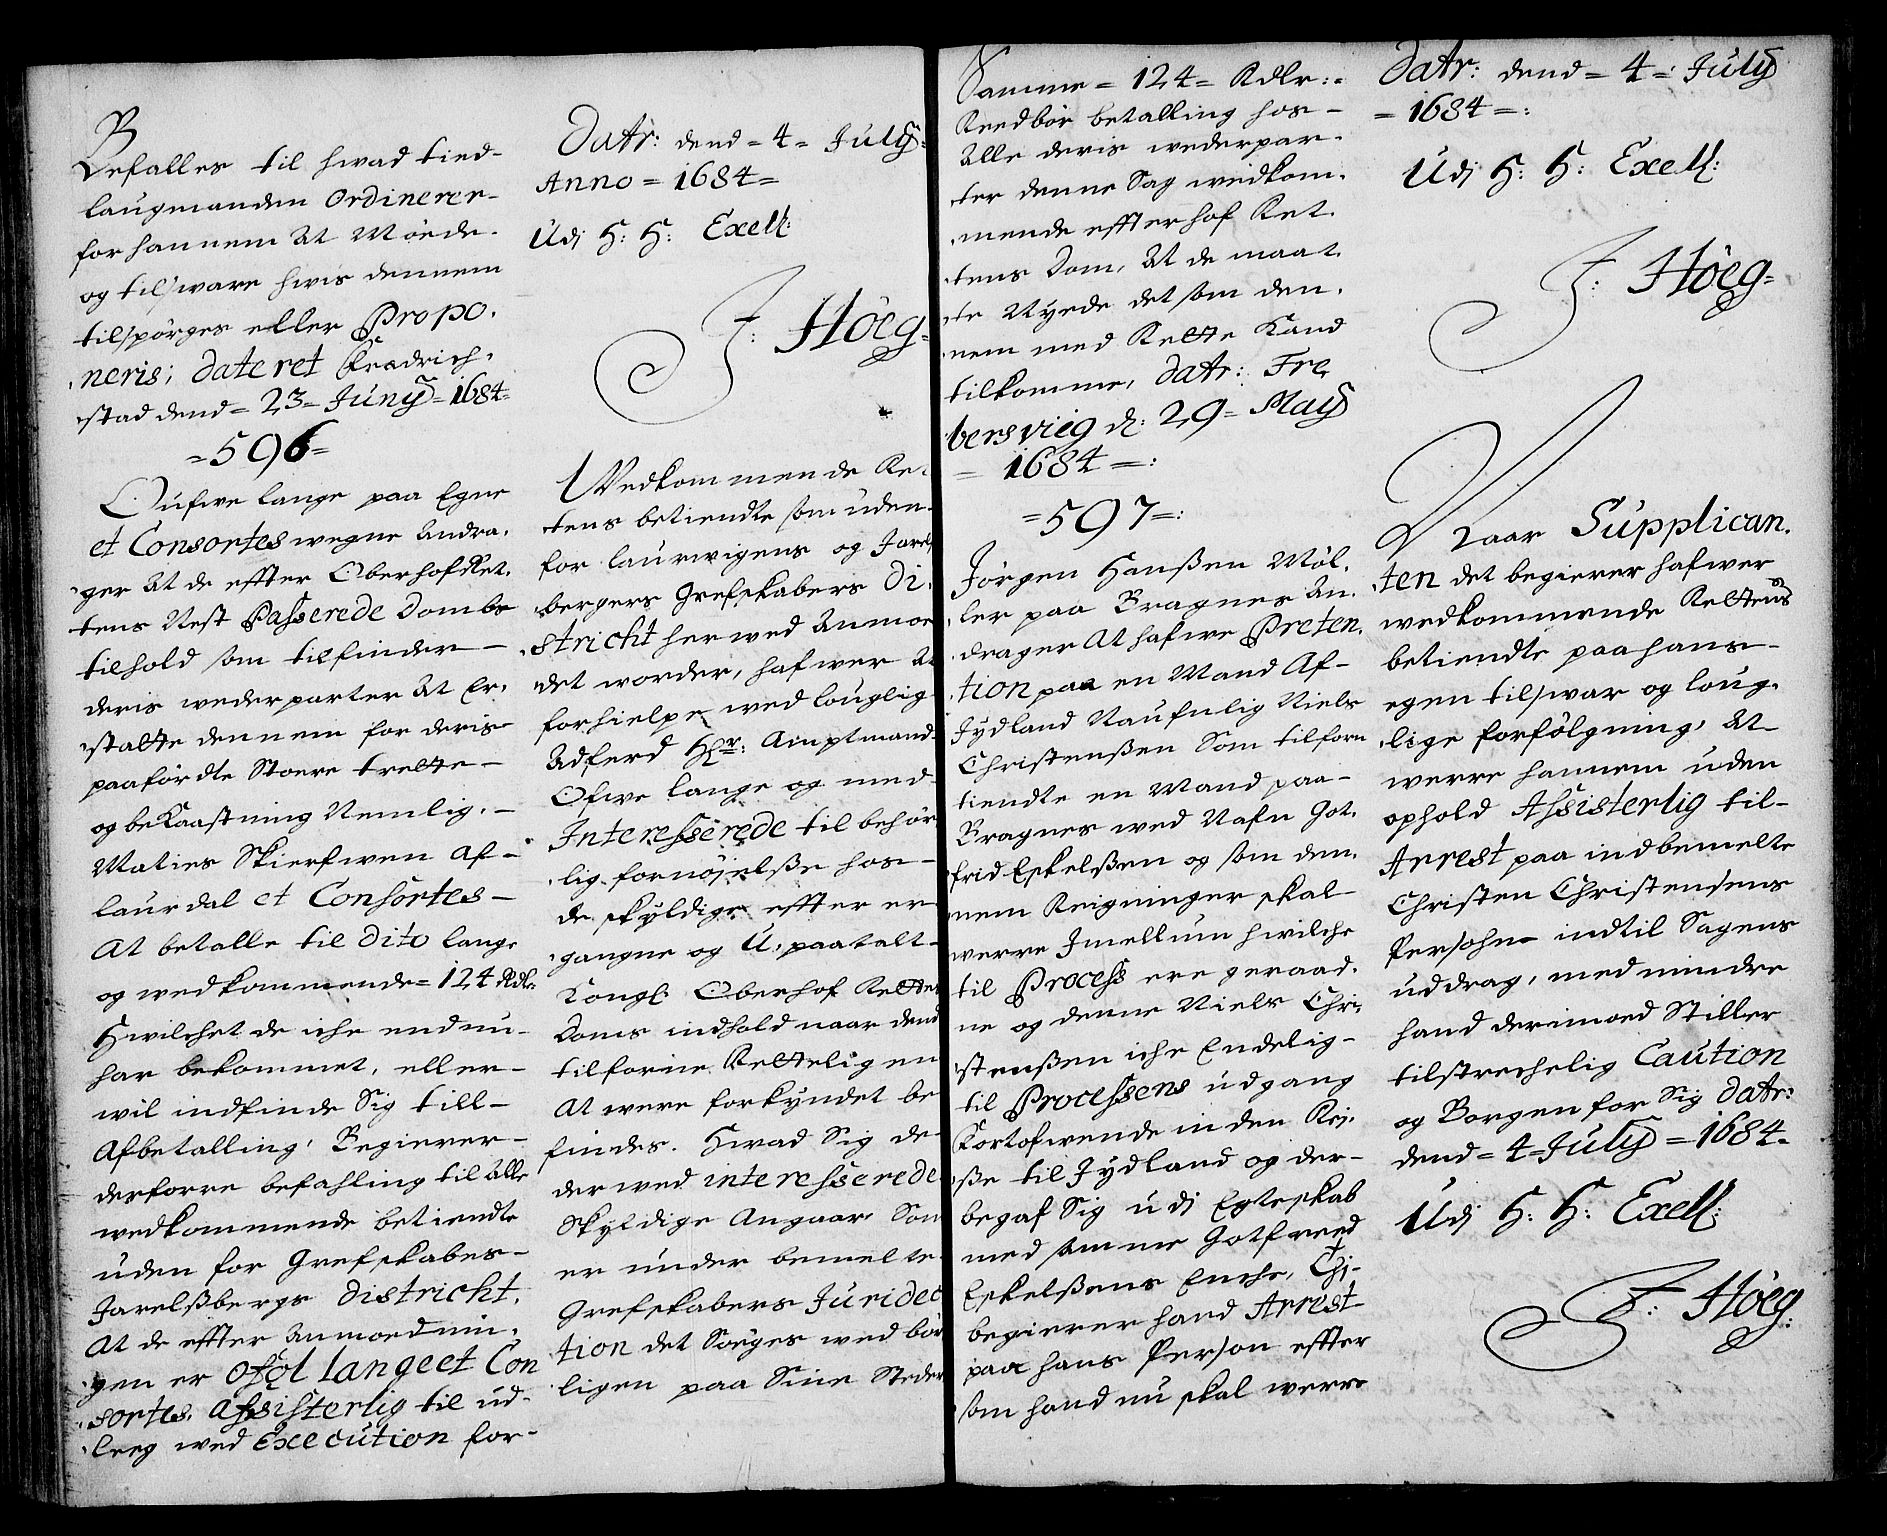 Befalles til hwad tied-
laugmanden Ordinerer-
for hannem At Møede-
og tilsware hwis dennem
tilspørges eller Propo,
neris; dateret Fredrich,
stad dend = 23 = Junÿ = 1684 =
= 596 =
Oufwe lange paa Egne
et Consortes wegne Andra,
ger At de effter Oberhofret,
tens Nest Passerede Dombs
tilhold som tilfinder-
deris wederparter At Er,
statte dennem for deris
paaførdte Stoere trette-
og bekaastning Nemlig,-
Maties Skierfwen af-
laurdal et Consortes-
At betalle til dito lange
og wedkommende = 124 Rdlr:
Hwilchet de iche endnu-
har bekommet, eller-
wil indfinde Sig till-
Afbetalling, Begierer-
derforre befahling til Alle
wedkommende betiendte
uden for Grefskabes-
Jarelsbergs district,
At de effter Anmoednin,
gen er Ofwe lange et Con
sortes, assisterlig til ud-
leeg wed Execution for-
Datr: dend = 4 = Julÿ =
Anno = 1684 =
Udj H: H: Exell:
J: Höeg =
Wedkommende Ret,
tens betiendte som uden-
for laurwigens og Jarels
bergers Grefskabers Di,
stricht herwed Anmoe
det worder, hafwer At
forhielpe wed louglig
Adferd Hr: Amptmand
Ofwe lange og med-
Interesserede til behør
lig fornøjelsse hos-
de skyldige effter er
gangne og U, paatalt-
Kongl: Oberhof Rettes
Doms indhold naar dend
tilforne Rettelig en
At were forkyndet be
findes. Hwad Sig de
der wed interesserede
Skyldige Angaar Som
er under bemelte
Grefskabers Juridec
tion det Søeges wed bør
ligen paa Sine Steder
Samme = 124 = Rdlr: =
Reedbør betalling hos-
Alle deris wederpar-
ter denne Sag wedkom,
mende effterhof Ret,
tens Dom, At de maat,
te Nyede det som den,
nem med Rette Kand
tilkomme, datr: Fre,
bersvieg d: 29 = Maÿ
= 1684 =:
= 597 =:
Jørgen Hanßen Møl,
ler paa Bragnes An,
drager At hafwe Preten,
tion paa en Mand Af-
Jydland Naufnlig Niels
Christenßen Som tilforn
tiendte en Mand paa-
Bragnes wed Nafn Got,
frid Eskelßen og som den,
nem Reigninger skal
werre Jmellum hwilche
til Process ere geraad,
ne og denne Niels Chri,
stenßen iche Endelig-
til Processens udgang
Kortofwende in den Rej,
ße til Jydland og der-
begaf Sig udj Egteskab
med samme Gotfreed
Eskelßens Enche,
begierer hand Arrest
paa hans Person effter
som hand nu skal werre
Datr: dend = 4 = Julÿ
= 1684 =:
Udj H: H: Exell:
J: Höeg =
Naar Supplican,
ten det begierer hafwer
wedkommende Rettens
betiendte paa hans-
egen tilswar og loug,
lige forfølgning, At-
werre hannem uden
ophold Assisterlig til-
Arrest paa indbemelte
Christen Christensens
Persohn indtil Sagens
uddrag, med mindre
hand derimoed Stiller
tilstrechelig Caution
og Borgen for Sig Datr:
dend = 4 = Julÿ = 1684 =
Udj H: H: Exell:
J: Höeg: